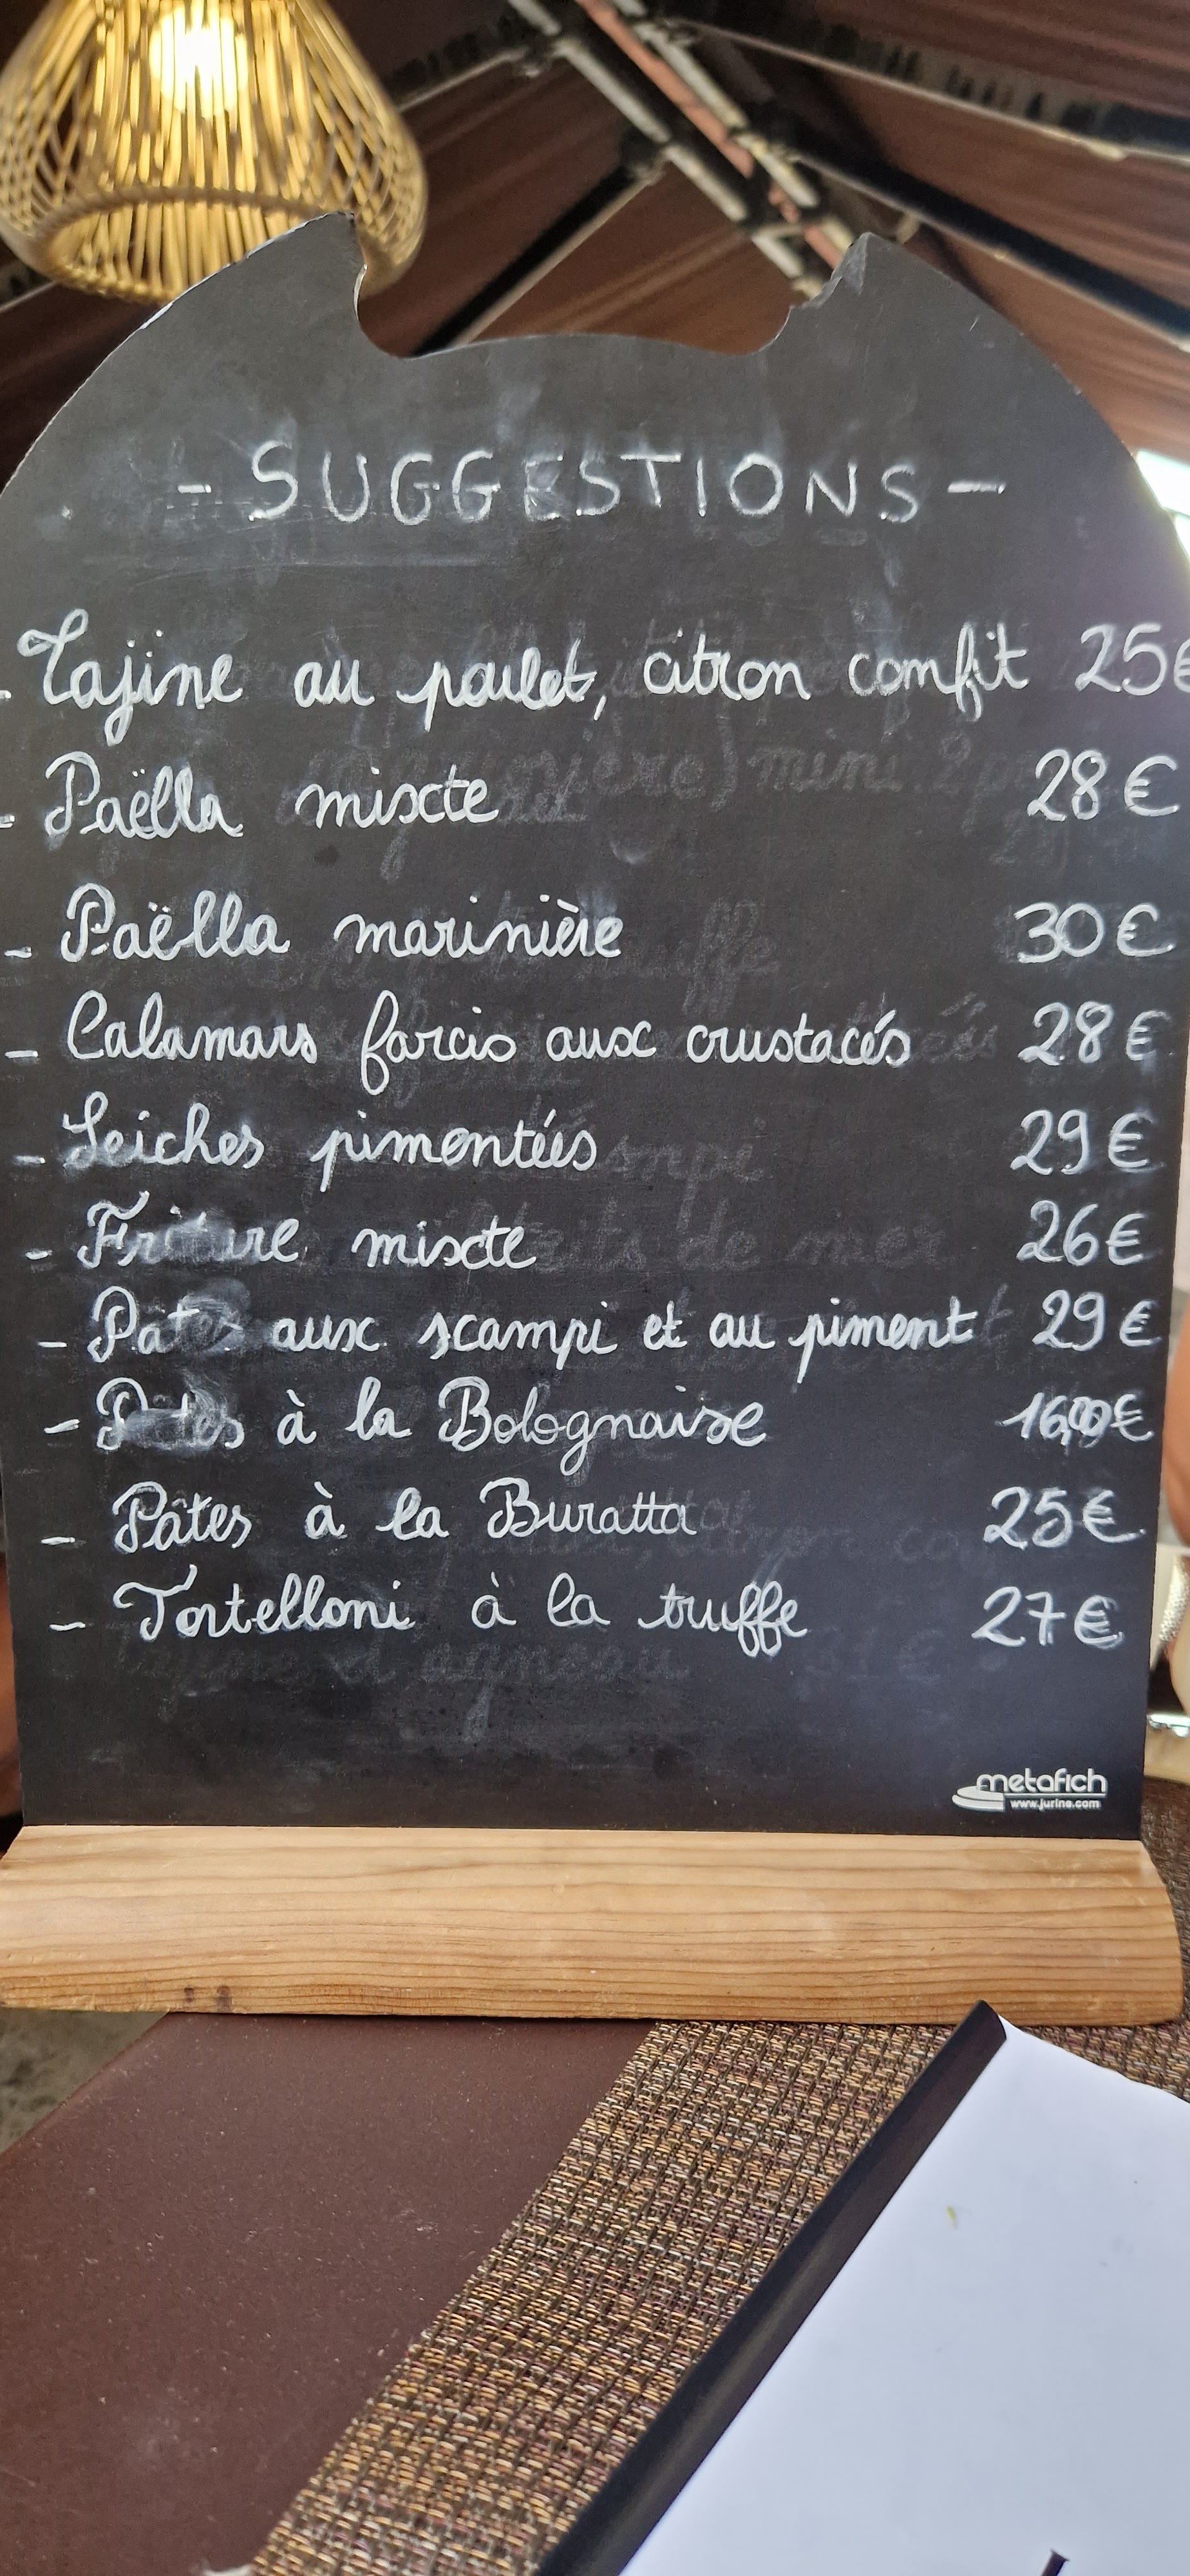 - SUGGESTIONS -
- Tajine au poulet, citron confit 25€
- Paëlla mixte 28€
- Paëlla marinière 30€
- Calamars farcis aux crustacés 28€
- Seiches pimentées 29€
- Friture mixte 26€
- Pates aux scampi et au piment 29€
- Pâtes à la Bolognaise €
- Pâtes à la Buratta 25€
- Tortelloni à la truffe 27€
metafich
www.jurine.com